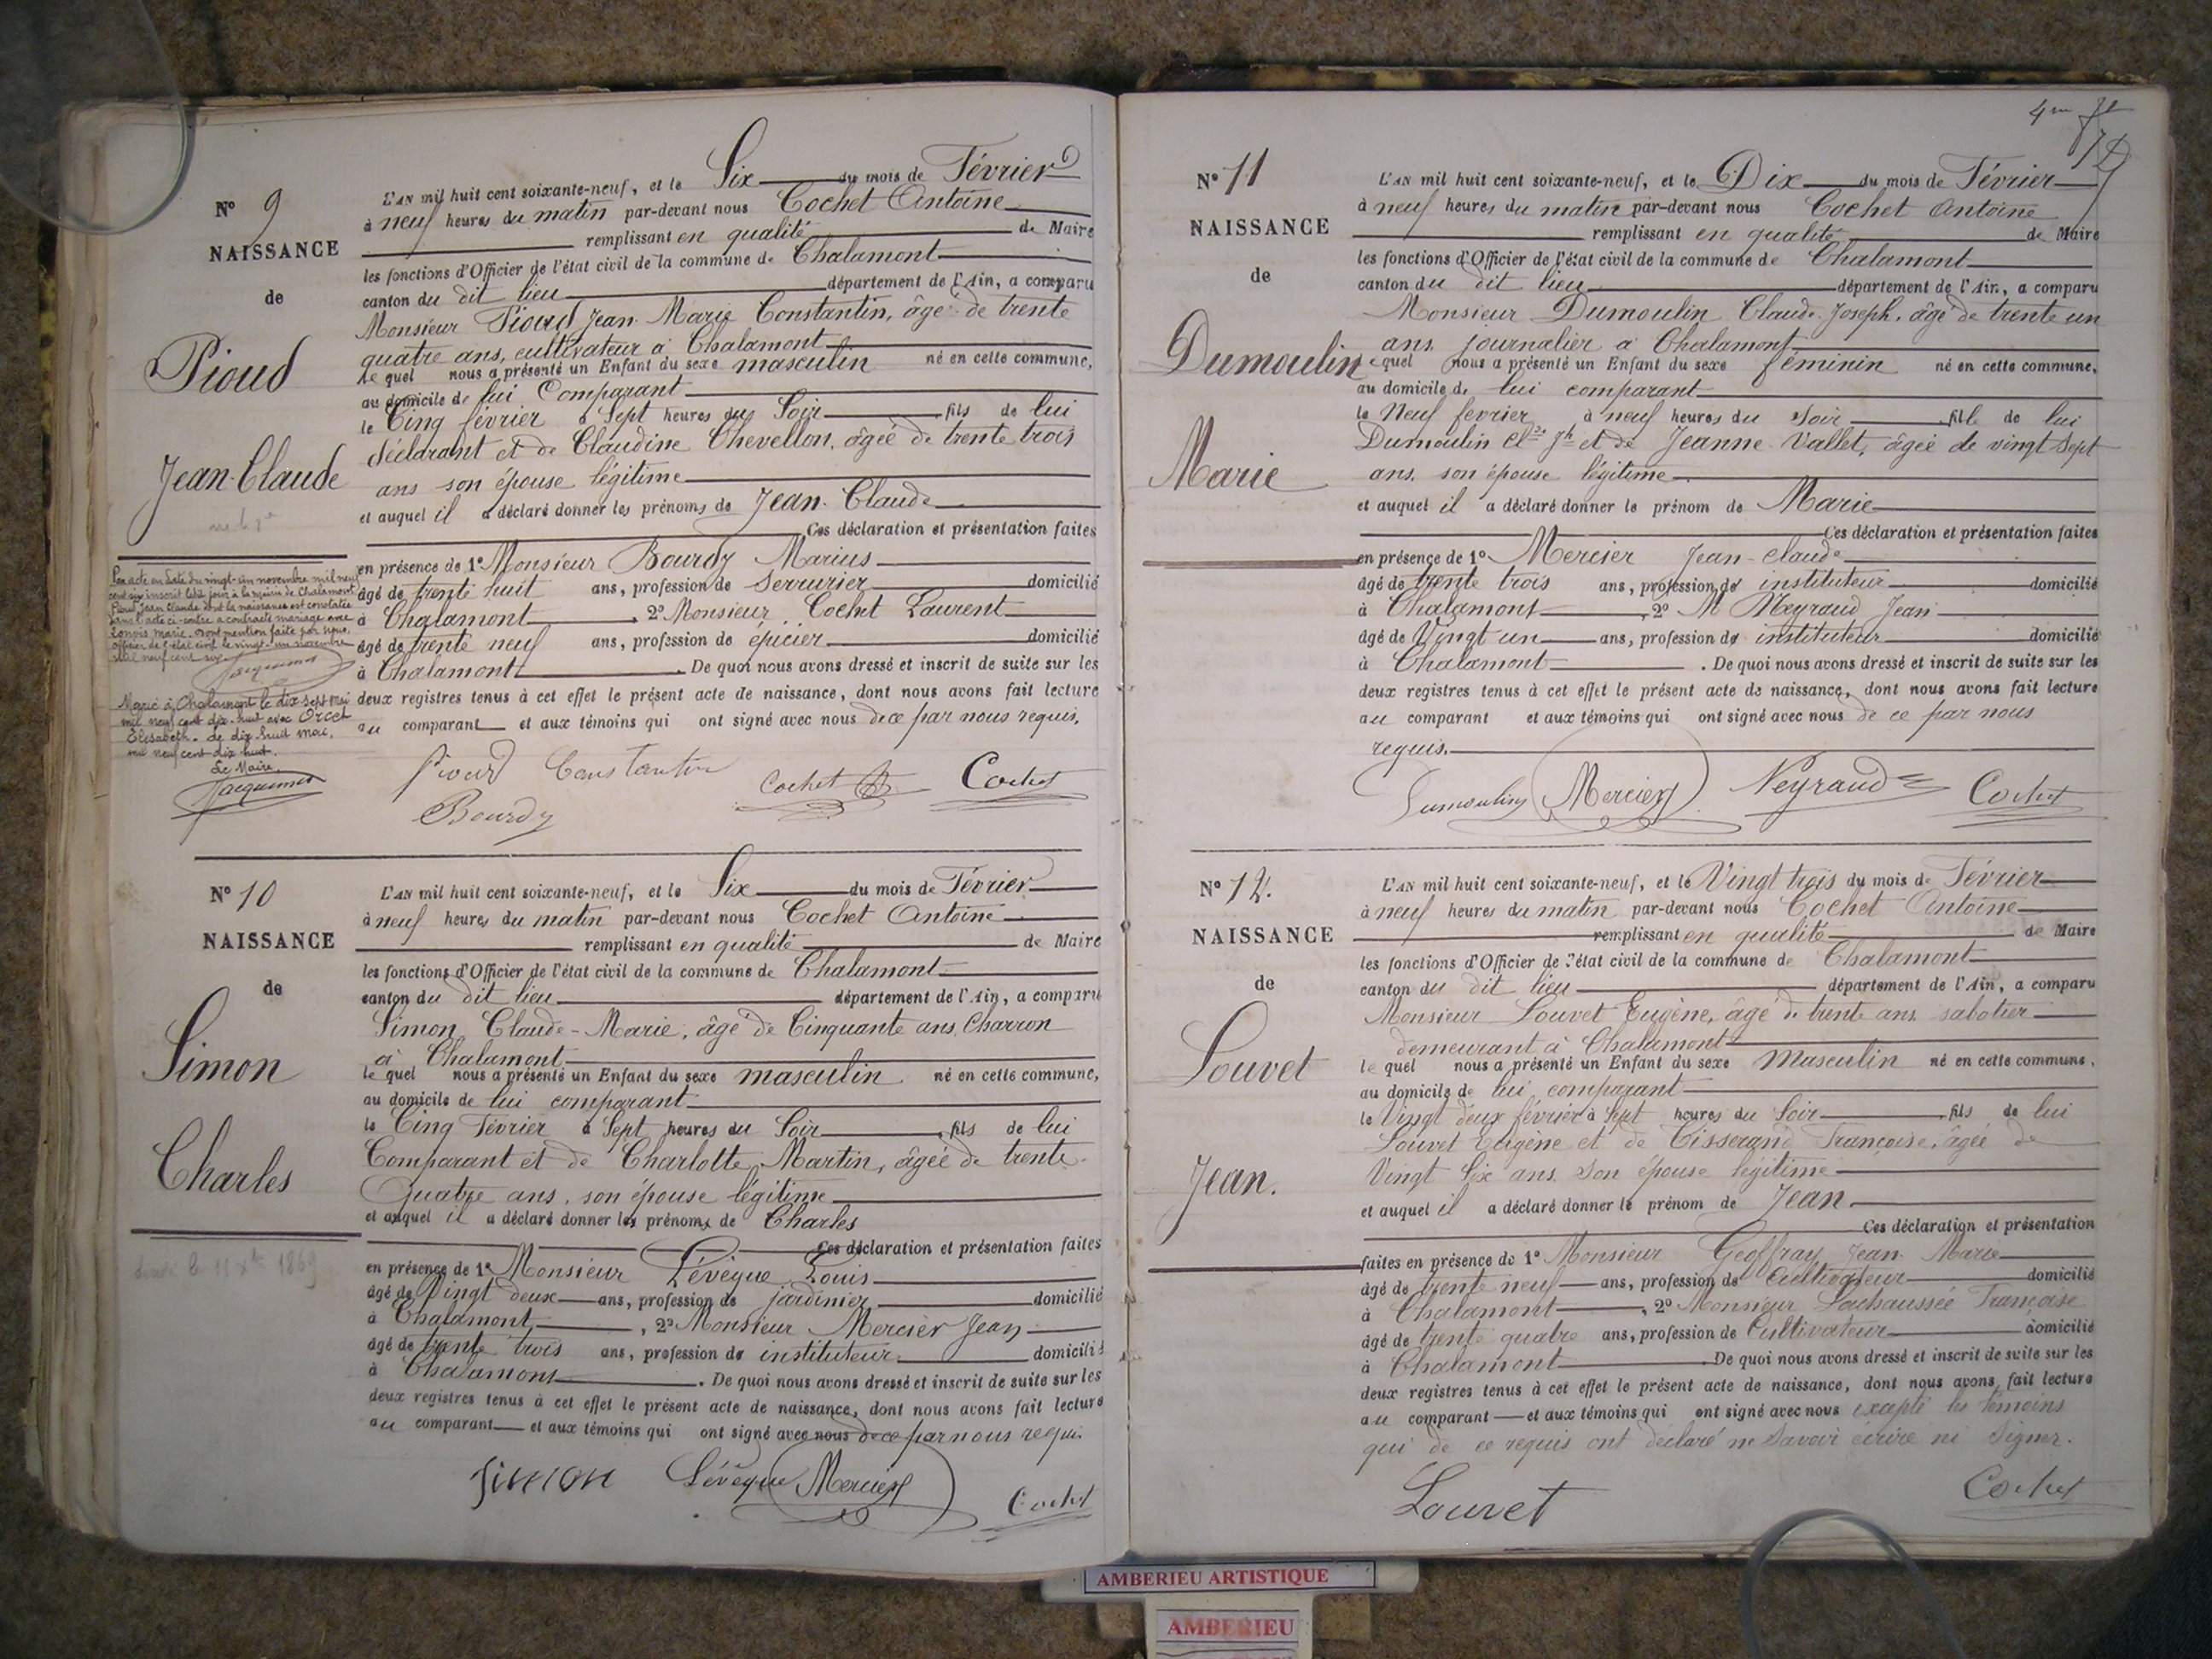 Nº 9
NAISSANCE
de
Pioud
Jean-Claude
L'AN mil huit cent soixante-neuf, et le Six du mois de Février
à neuf heures du matin par-devant nous Cochet Antoine
remplissant en qualité de Maire
les fonctions d'Officier de l'état civil de la commune de Chalamont
canton du dit lieu département de l'Ain, a comparu
Monsieur Pioud Jean Marie Constantin, âgé de trente
quatre ans, cultivateur à Chalamont
le quel nous a présenté un Enfant du sexe masculin né en cette commune,
au domicile de lui Comparant
le Cinq février à Sept heures du Soir fils de lui
déclarant et de Claudine Chevellon, âgée de trente trois
ans son épouse légitime
et auquel il a déclaré donner les prénoms de Jean-Claude
Ces déclaration et présentation faites
en présence de 1º Monsieur Bourdy Marius
âgé de trente huit ans, profession de serrurier domicilié
à Chalamont, 2º Monsieur Cochet Laurent
âgé de trente neuf ans, profession de épicier domicilié
à Chalamont. De quoi nous avons dressé et inscrit de suite sur les
deux registres tenus à cet effet le présent acte de naissance, dont nous avons fait lecture
au comparant et aux témoins qui ont signé avec nous de ce par nous requis.
Par acte en date du vingt-un novembre mil neuf
cent six inscrit ledit jour à la mairie de Chalamont
Pioud Jean Claude dont la naissance est constatée
dans l'acte ci-contre a contracté mariage avec
marie. dont mention faite par nous,
officier de l'état civil le vingt-un novembre
mil neuf cent six
Jacquemet
Marié à Chalamont le dix-sept mai
mil neuf cent dix-huit avec Orcet
Elisabeth. Le dix-huit mai,
mil neuf cent dix-huit.
Le Maire,
Jacquemet
Pioud Constantin Cochet Cochet
Bourdy
Nº 10
NAISSANCE
de
Simon
Charles
L'AN mil huit cent soixante-neuf, et le Six du mois de Février
à neuf heures du matin par-devant nous Cochet Antoine
remplissant en qualité de Maire
les fonctions d'Officier de l'état civil de la commune de Chalamont
canton du dit lieu département de l'Ain, a comparu
Simon Claude-Marie, âgé de Cinquante ans, Charron
à Chalamont
le quel nous a présenté un Enfant du sexe masculin né en cette commune,
au domicile de lui comparant
le Cinq Février à Sept heures du Soir, fils de lui
Comparant et de Charlotte Martin, âgée de trente
quatre ans, son épouse légitime
et auquel il a déclaré donner les prénoms de Charles
Ces déclaration et présentation faites
en présence de 1º Monsieur Lévêque Louis
âgé de Vingt deux ans, profession de jardinier domicilié
à Chalamont, 2º Monsieur Mercier Jean
âgé de trente trois ans, profession de instituteur domicilié
à Chalamont. De quoi nous avons dressé et inscrit de suite sur les
deux registres tenus à cet effet le présent acte de naissance, dont nous avons fait lecture
au comparant et aux témoins qui ont signé avec nous de ce par nous requis
le 11 1869
Simon Lévêque Mercier Cochet
Nº 11
NAISSANCE
de
Dumoulin
Marie
L'AN mil huit cent soixante-neuf, et le Dix du mois de Février
à neuf heures du matin par-devant nous Cochet Antoine
remplissant en qualité de Maire
les fonctions d'Officier de l'état civil de la commune de Chalamont
canton du dit lieu département de l'Ain, a comparu
Monsieur Dumoulin Claude-Joseph, âgé de trente un
ans journalier à Chalamont
le quel nous a présenté un Enfant du sexe féminin né en cette commune,
au domicile de lui comparant
le Neuf février à neuf heures du soir fille de lui
Dumoulin Cl.de Jh et de Jeanne Vallet, âgée de vingt sept
ans, son épouse légitime
et auquel il a déclaré donner le prénom de Marie
Ces déclaration et présentation faites
en présence de 1º Mercier Jean-Claude
âgé de trente trois ans, profession de instituteur domicilié
à Chalamont, 2º M Neyraud Jean
âgé de Vingt un ans, profession de instituteur domicilié
à Chalamont. De quoi nous avons dressé et inscrit de suite sur les
deux registres tenus à cet effet le présent acte de naissance, dont nous avons fait lecture
au comparant et aux témoins qui ont signé avec nous de ce par nous
requis.
Dumoulin Mercier Neyraud Cochet
Nº 12.
NAISSANCE
de
Louvet
Jean.
L'AN mil huit cent soixante-neuf, et le Vingt trois du mois de Février
à neuf heures du matin par-devant nous Cochet Antoine
remplissant en qualité de Maire
les fonctions d'Officier de l'état civil de la commune de Chalamont
canton du dit lieu département de l'Ain, a comparu
Monsieur Louvet Eugène, âgé de trente ans sabotier
demeurant à Chalamont
le quel nous a présenté un Enfant du sexe Masculin né en cette commune,
au domicile de lui comparant
le Vingt deux février à Sept heures du Soir, fils de lui
Louvet Eugène et de Tisserand Françoise, âgée de
Vingt Six ans, Son épouse légitime
et auquel il a déclaré donner le prénom de Jean
Ces déclaration et présentation
faites en présence de 1º Monsieur Geoffray Jean Marie
âgé de trente neuf ans, profession de Cultivateur domicilié
à Chalamont, 2º Monsieur Lachaussée Françoise
âgé de trente quatre ans, profession de Cultivateur domicilié
à Chalamont. De quoi nous avons dressé et inscrit de suite sur les
deux registres tenus à cet effet le présent acte de naissance, dont nous avons fait lecture
au comparant et aux témoins qui ont signé avec nous excepté les témoins
qui de ce requis ont déclaré ne Savoir écrire ni Signer.
Louvet Cochet
AMBERIEU ARTISTIQUE
AMBERIEU